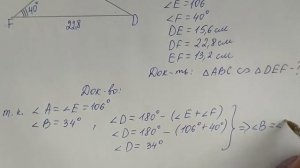 ∠E = 106°
∠F = 40°
DE = 15,6 см
DF = 22,8 см
EF = 13,2 см
40°
F 22,8 D
Док-ть: △ABC ∽ △DEF - ?
Док-во:
т.к. ∠A = ∠E = 106°
∠B = 34° , ∠D = 180° - (∠E + ∠F)
∠D = 180° - (106° + 40°) } ⇒ ∠B = ∠
∠D = 34°